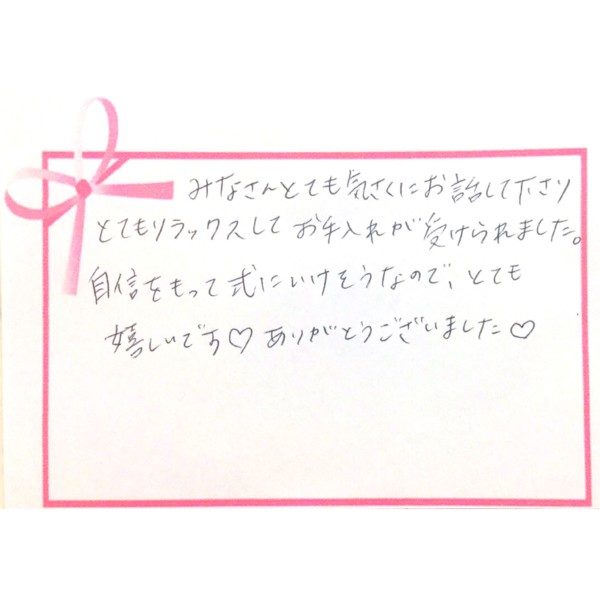 みなさんとても気さくにお話して下さり
とてもリラックスしてお手入れが受けられました。
自信をもって式にいけそうなので、とても
嬉しいです♡ありがとうございました♡